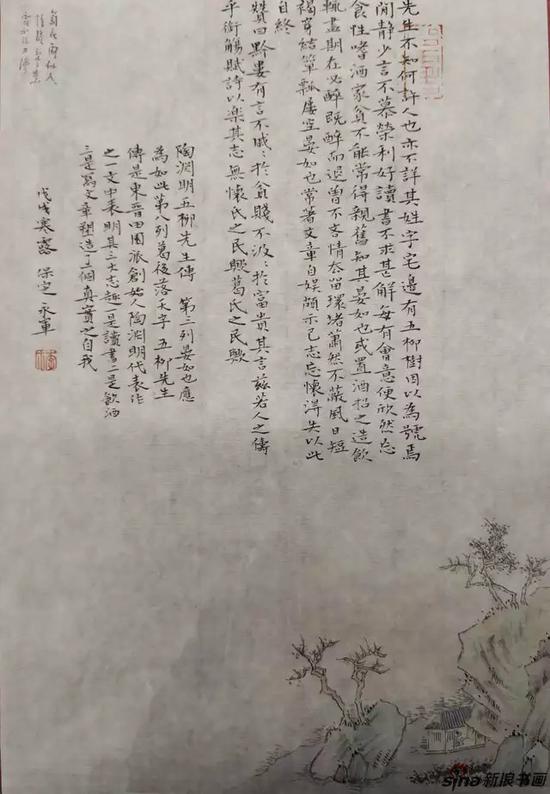 先生不知何許人也亦不詳其姓字宅邊有五柳樹因以為號焉
閒静少言不慕榮利好讀書不求甚解每有會意便欣然忘
食性嗜酒家貧不能常得親舊知其晏如也或置酒招之造飲
輒盡期在必醉既醉而退曾不吝情去留環堵蕭然不蔽風日短
褐穿結簞瓢屢空晏如也常著文章自娛頗示己志忘懷得失以此
自終
贊曰黔婁有言不戚〻於貧賤不汲〻於富貴其言茲若人之儔
乎銜觴賦詩以樂其志無懷氏之民歟葛氏之民歟
陶淵明五柳先生傳 第三列晏如也應
為如此第八列葛後落天字 五柳先生
傳是東晉田園派創始人陶淵明代表作
之一文中表明其三大志趣一是讀書二是飲酒
三是寫文章塑造了一個真實之自我
戊戌寒露 保定 永軍
sina 新浪书画